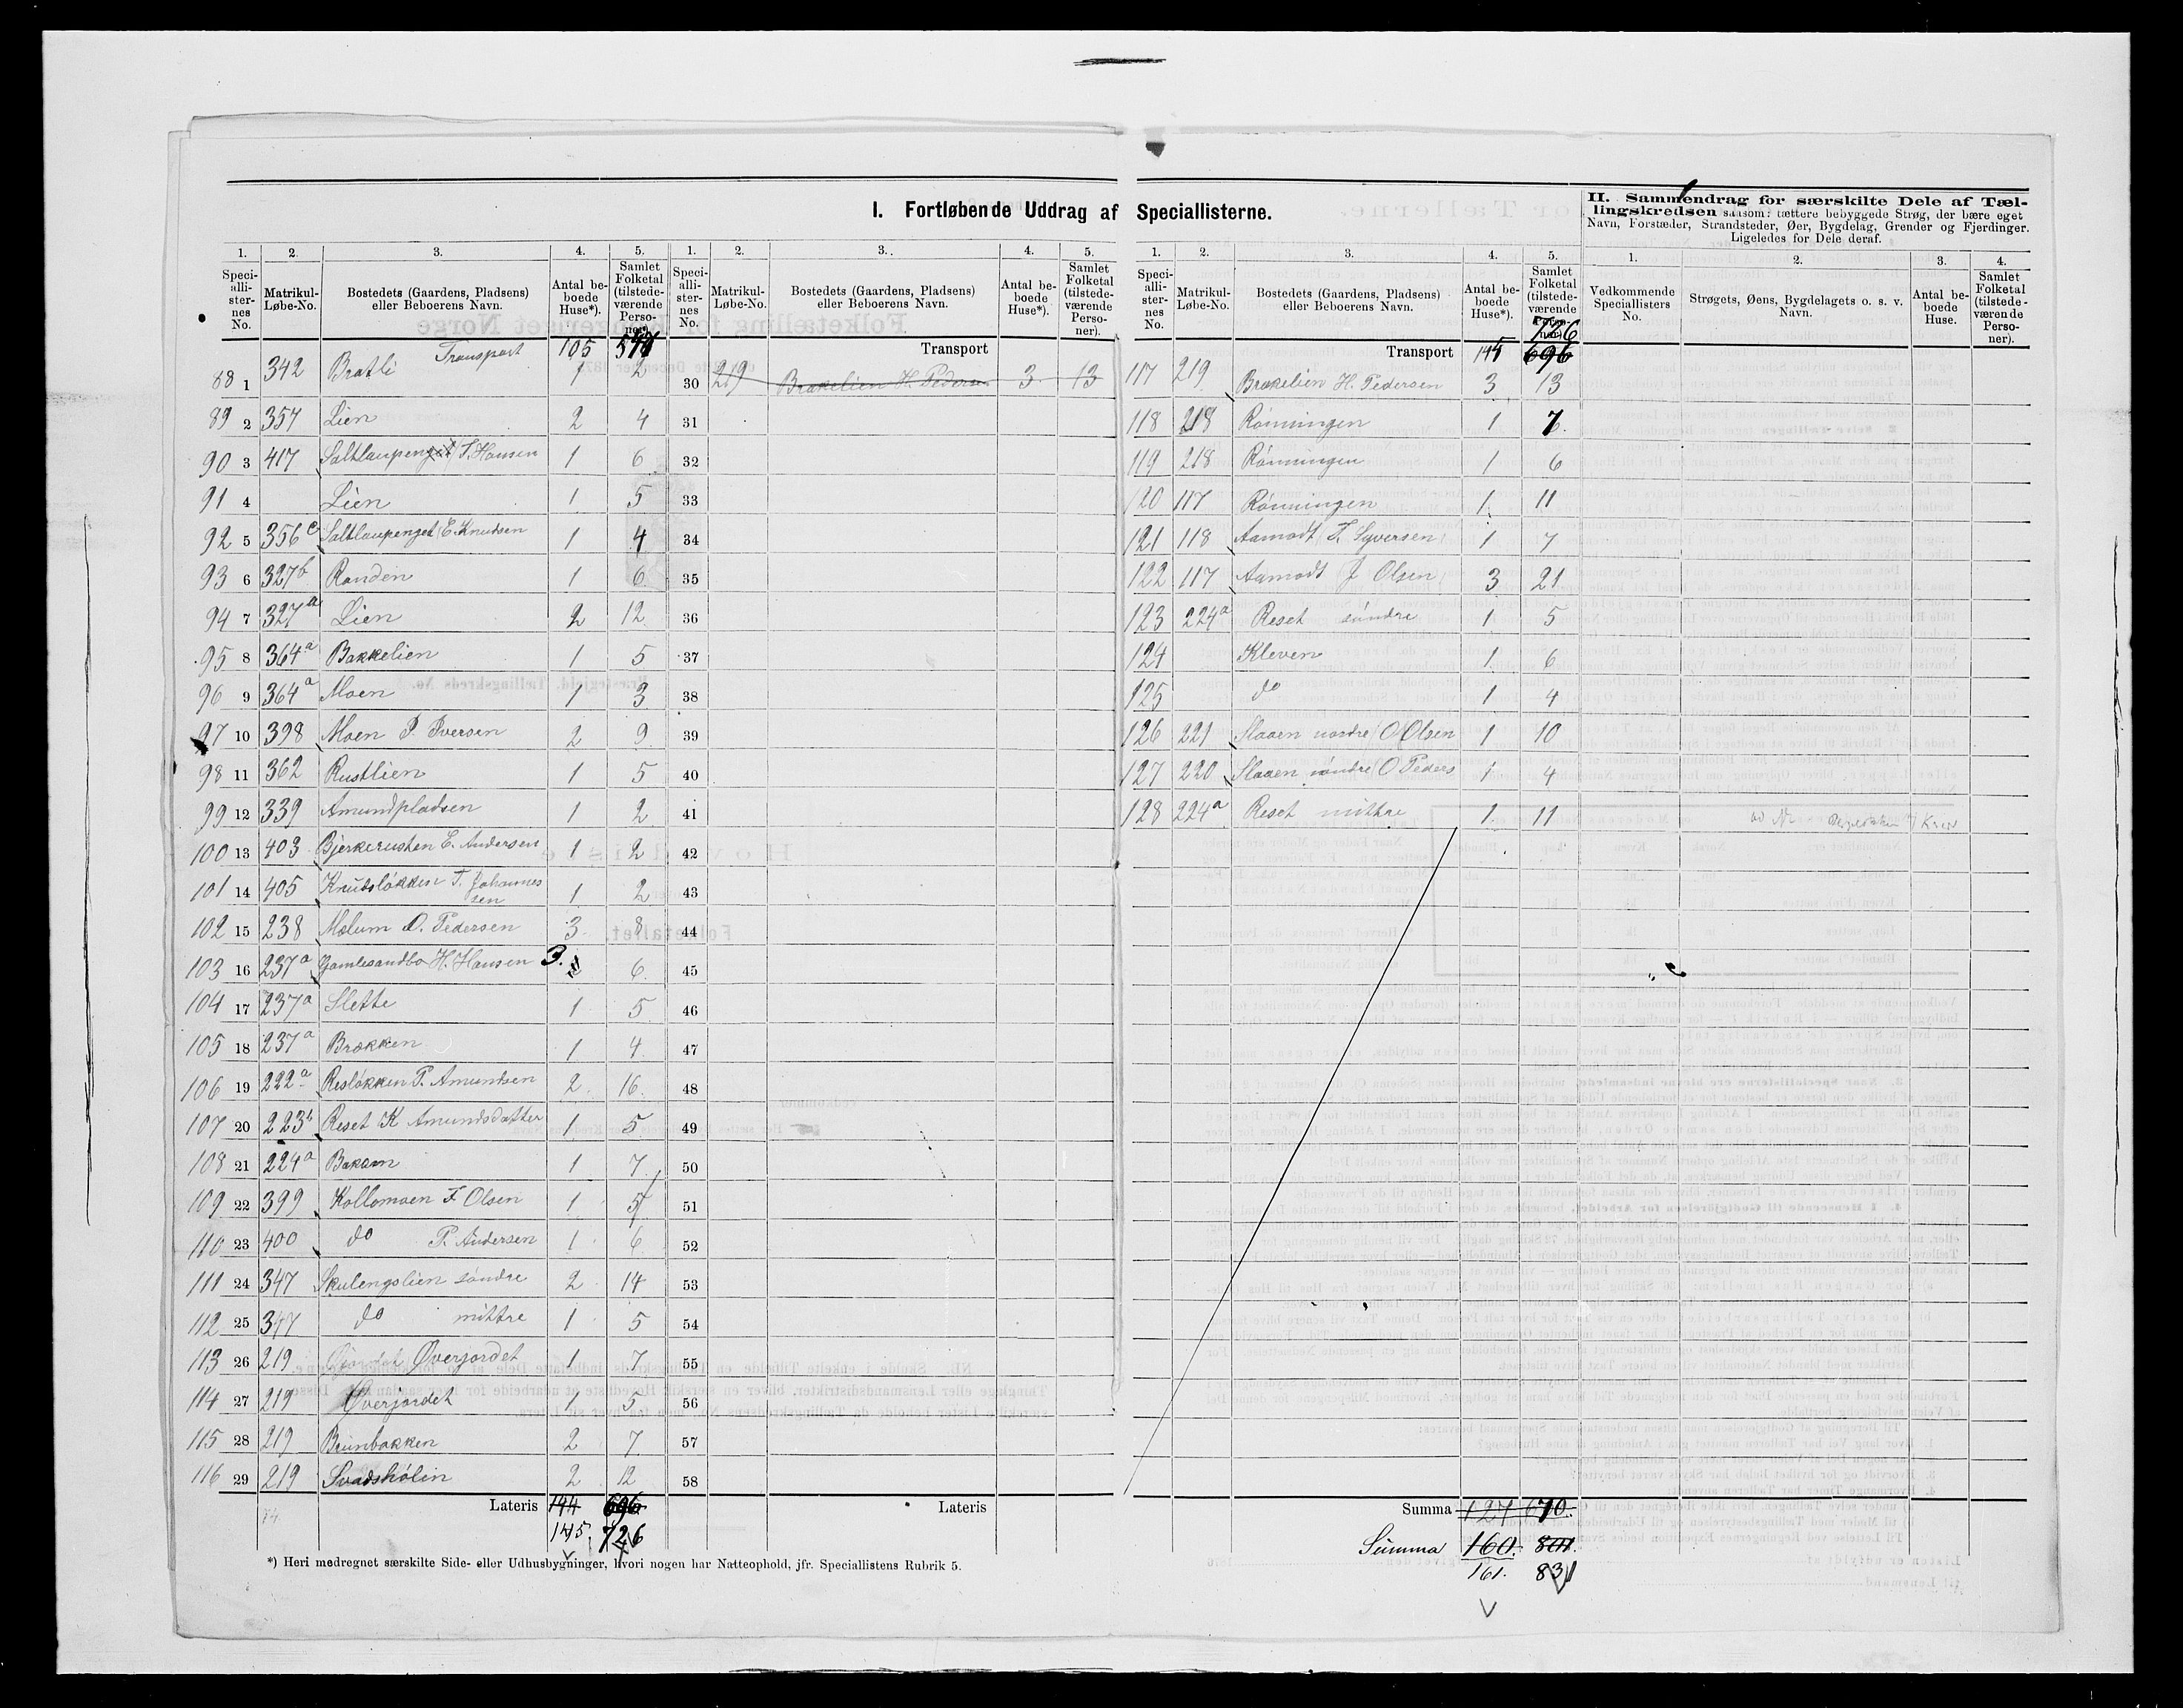 I. Fortløbende Uddrag af Speciallisterne.
II. Sammendrag for særskilte Dele af Tællingskredsen saasom: tættere bebyggede Strøg, der bære eget
Navn, Forstæder, Strandsteder, Øer, Bygdelag, Grender og Fjerdinger.
Ligeledes for Dele deraf.
1. 2. 3. 4. 5. 1. 2. 3. 4. 5.
Specialli-sternes No. Matrikul-Løbe-No. Bostedets (Gaardens, Pladsens) eller Beboerens Navn. Antal beboede Huse*). Samlet Folketal (tilstedeværende Personer).
Transport 105
88 1 342 Bratli 1 2
89 2 357 Lien 2 4
90 3 417 Saltlaupenget T. Hansen 1 6
91 4 Lien 1 5
92 5 356c Saltlaupenget E. Knudsen 1 4
93 6 327b Randen 1 6
94 7 327a Lien 2 12
95 8 364a Bakkelien 1 5
96 9 364a Moen 1 3
97 10 398 Moen P. Iversen 2 9
98 11 362 Rustlien 1 5
99 12 339 Amundpladsen 1 2
100 13 403 Bjerkerusten E. Andersen 1 2
101 14 405 Knutsløkken T. Johannessen 1 2
102 15 238 Mælum O. Pedersen 3 8
103 16 237a Gamlesandbo H. Hansen 3. 6
104 17 237a Slette 1 5
105 18 237a Brækken 1 4
106 19 222a Resløkken P. Amundsen 2 16
107 20 223b Reset K Amundsdatter 1 5
108 21 224a Bakom 1 7
109 22 399 Kollomoen F Olsen 1 5
110 23 400 do P. Andersen 1 6
111 24 347 Skulengslien søndre 2 14
112 25 347 do mittre 1 5
113 26 219 Øverjordet 1 7
114 27 219 Øverjordet 1 5
115 28 219 Brunbakken 2 7
116 29 219 Svadshølin 2 12
Lateris 144 696
145. 726
*) Heri medregnet særskilte Side- eller Udhusbygninger, hvori nogen har Natteophold, jfr. Speciallistens Rubrik 5.
Transport
30 219 Brækelien H. Pedersen 3 13
31
32
33
34
35
36
37
38
39
40
41
42
43
44
45
46
47
48
49
50
51
52
53
54
55
56
57
58
Lateris
1. 2. 3. 4. 5.
Specialli-sternes No. Matrikul-Løbe-No. Bostedets (Gaardens, Pladsens) eller Beboerens Navn. Antal beboede Huse*). Samlet Folketal (tilstedeværende Personer).
726
Transport 145 696
117 219 Brækelien H. Pedersen 3 13
118 218 Rønningen 1 7
119 218 Rønningen 1 6
120 117 Rønningen 1 11
121 118 Aamodt T. Syversen 1 7
122 117 Aamodt J Olsen 3 21
123 224a Reset søndre 1 5
124 Kleven 1 6
125 do 1 4
126 221 Slaaen nordre O Olsen 1 10
127 220 Slaaen søndre O Peders 1 4
128 224a Reset mittre 1 11
Summa 127 670.
Summa 160. 801.
161. 831
1. 2. 3. 4.
Vedkommende Speciallisters No. Strøgets, Øens, Bygdelagets o. s. v. Navn. Antal beboede Huse. Samlet Folketal (tilstedeværende Personer).